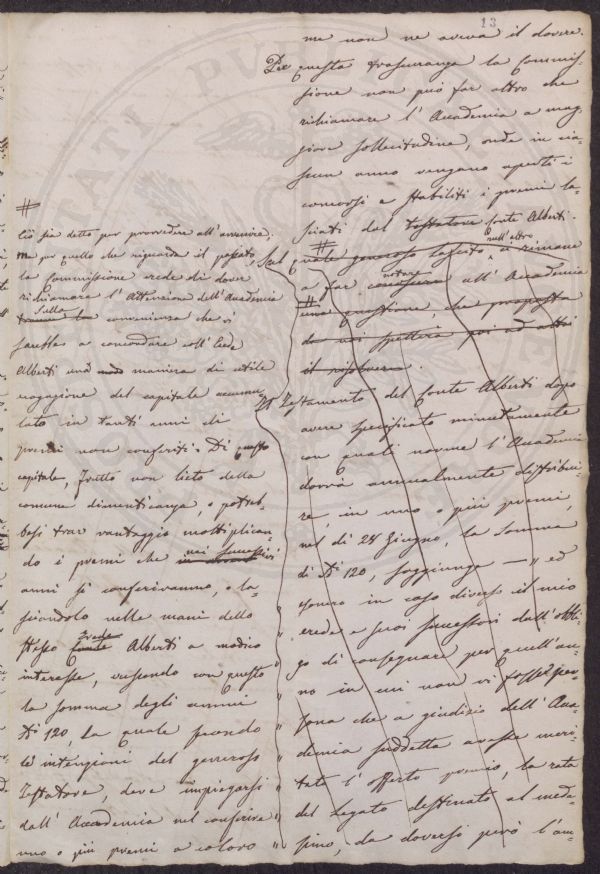 13
me non ne aveva il dovere.
Per questa trascuranza la Commis-
sione non può far altro che
richiamare l'Accademia a mag-
giore sollecitudine, onde in cia-
scun anno vengano aperti i
concorsi e stabiliti i premj la-
sciati dal testatore Conte Alberti.
# Sul quale generoso lascito, null'altro ci rimane
a far notare all'Accademia
# una questione, che proposta
da noi spetterà poi ad altri
il risolvere.
Il Testamento del Conte Alberti dopo
avere specificato minutamente
con quali norme l'Accademia
dovrà annualmente distribui-
re, in uno o più premj,
nel dì 24 Giugno, la somma
di Di 120, soggiunge — " ed
esonero in caso diverso il mio
" erede e suoi successori dall'obbli-
" go di consegnare per quell'an-
" no in cui non vi fosse per-
" sona che a giudizio dell'Acca-
" demia suddetta avesse meri-
" tato l'offerto premio, la rata
" del Legato destinato al mede-
" simo, da doversi però l'am-
#
Ciò sia detto per provvedere all'avvenire;
ma per quello che riguarda il passato
la Commissione crede di dover
richiamare l'Attenzione dell'Accademia
sulla convenienza che vi
sarebbe a concordare coll'Erede
Alberti una maniera di utile
erogazione del capitale accumu-
lato in tanti anni di
premj non conferiti. Di questo
capitale, frutto non lieto della
comune dimenticanza, o potreb-
besi trar vantaggio moltiplican-
do i premj che nei successivi
anni si conferiranno, o la-
sciandolo nelle mani dello
stesso Erede Alberti a modico
interesse, crescendo con questo
la somma degli annui
Di 120, la quale secondo
le intenzioni del generoso
Testatore, deve impiegarsi
dall'Accademia nel conferire
uno o più premj a coloro